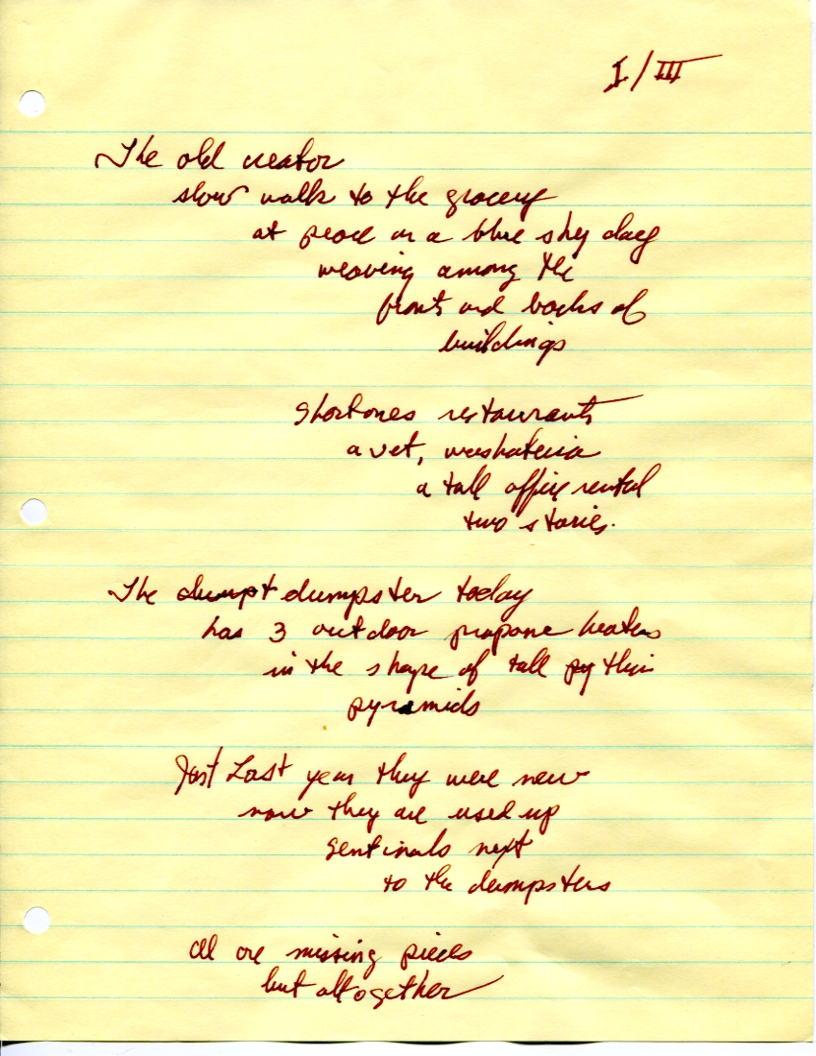 I/III
The old creator
slow walk to the grocery
at peace on a blue sky day
weaving among the
fronts and backs of
buildings
Short ones restaurants
a vet, washateria
a tall office rental
two stories.
The dumpt dumpster today
has 3 outdoor propane heaters
in the shape of tall py thin
pyramids
Just Last year they were new
now they are used up
sentinals next
to the dumpsters
all are missing pieces
but altogether